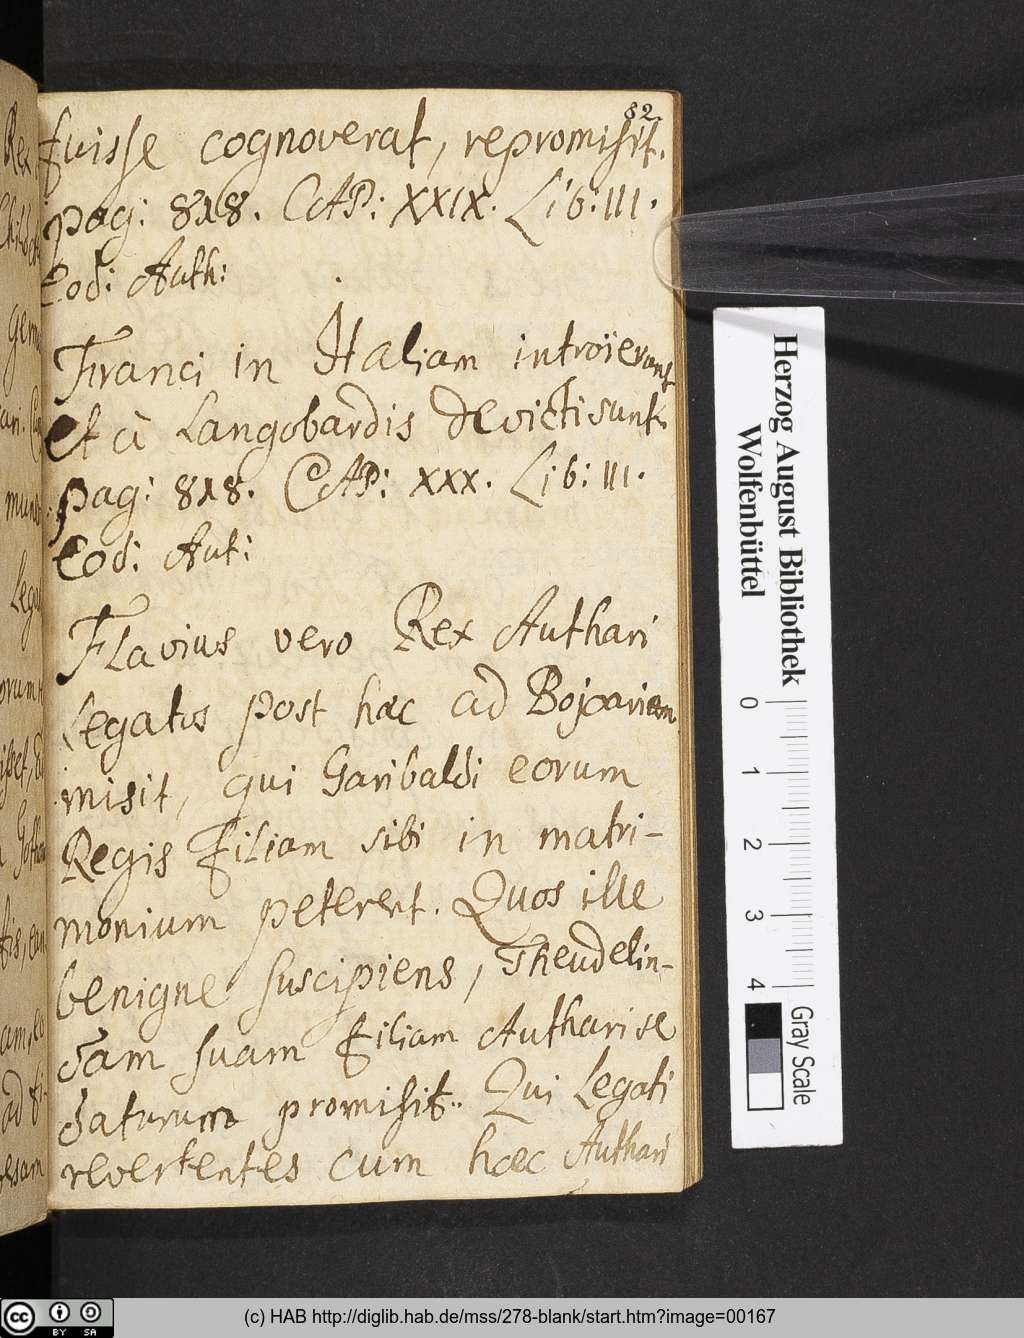 82
fuisse cognoverat, repromisit.
pag: 818. CAP: XXIX. Lib: III.
Eod: Auth:
Franci in Italiam introïerunt
et à Langobardis devicti sunt.
pag: 818. CAP: XXX. Lib: III.
Eod: Aut:
Flavius vero Rex Authari
Legatos post hæc ad Bojoariam
misit, qui Garibaldi eorum
Regis filiam sibi in matri-
monium peterent. Quos ille
benigne suscipiens, Theudelin-
dam suam filiam Authari se
daturum promisit. Qui Legati
revertentes cum hæc Authari
Rex
mun
Legat
orum
am, eo
ad fi-
esam
Herzog August Bibliothek
Wolfenbüttel
0 1 2 3 4
Gray Scale
cc BY SA
(c) HAB http://diglib.hab.de/mss/278-blank/start.htm?image=00167